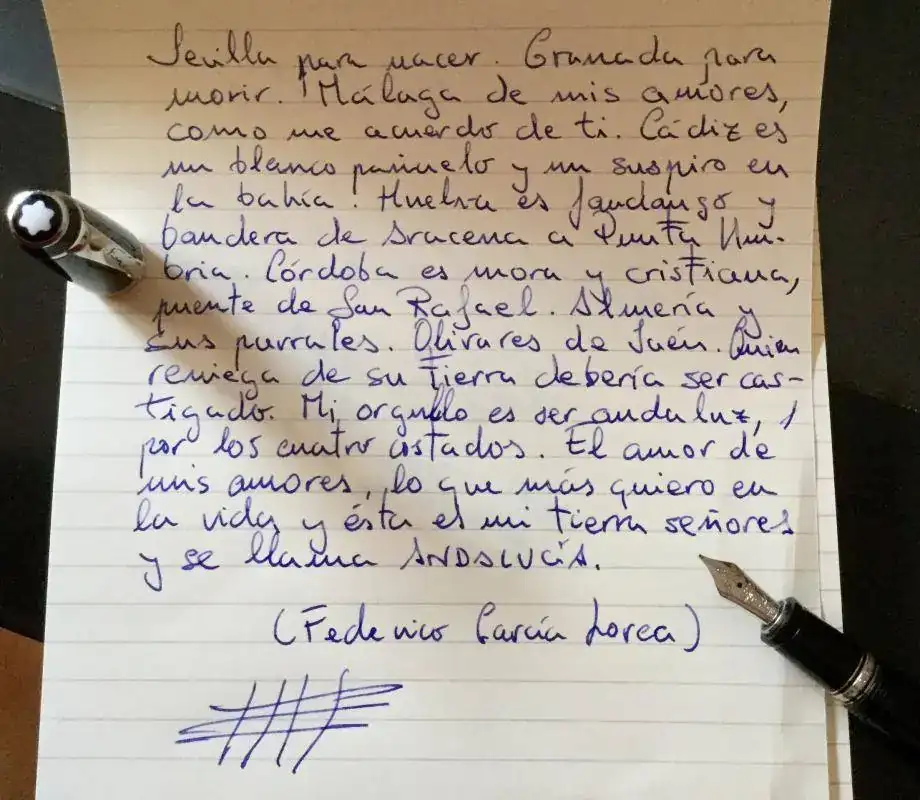 Sevilla para nacer. Granada para
morir. Málaga de mis amores,
como me acuerdo de ti. Cádiz es
un blanco pañuelo y un suspiro en
la bahía. Huelva es fandango y
bandera de Aracena a Punta Um-
bria. Córdoba es mora y cristiana,
puente de San Rafael. Almería y
sus parrales. Olivares de Jaén. Quien
reniega de su tierra debería ser cas-
tigado. Mi orgullo es ser andaluz,
por los cuatro costados. El amor de
mis amores, lo que más quiero en
la vida y ésta es mi tierra señores
y se llama ANDALUCÍA.
(Federico García Lorca)